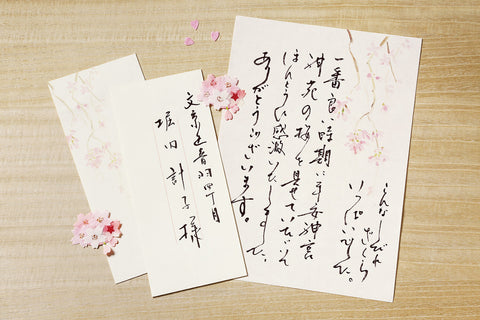 こんなしだれ
さくら
いっぱいでした。
一番良い時期に平安神宮
神苑の桜を見せていただいて
ほんとうに感激いたしました。
ありがとうございます。
文京区音羽四丁目
堀田計子様